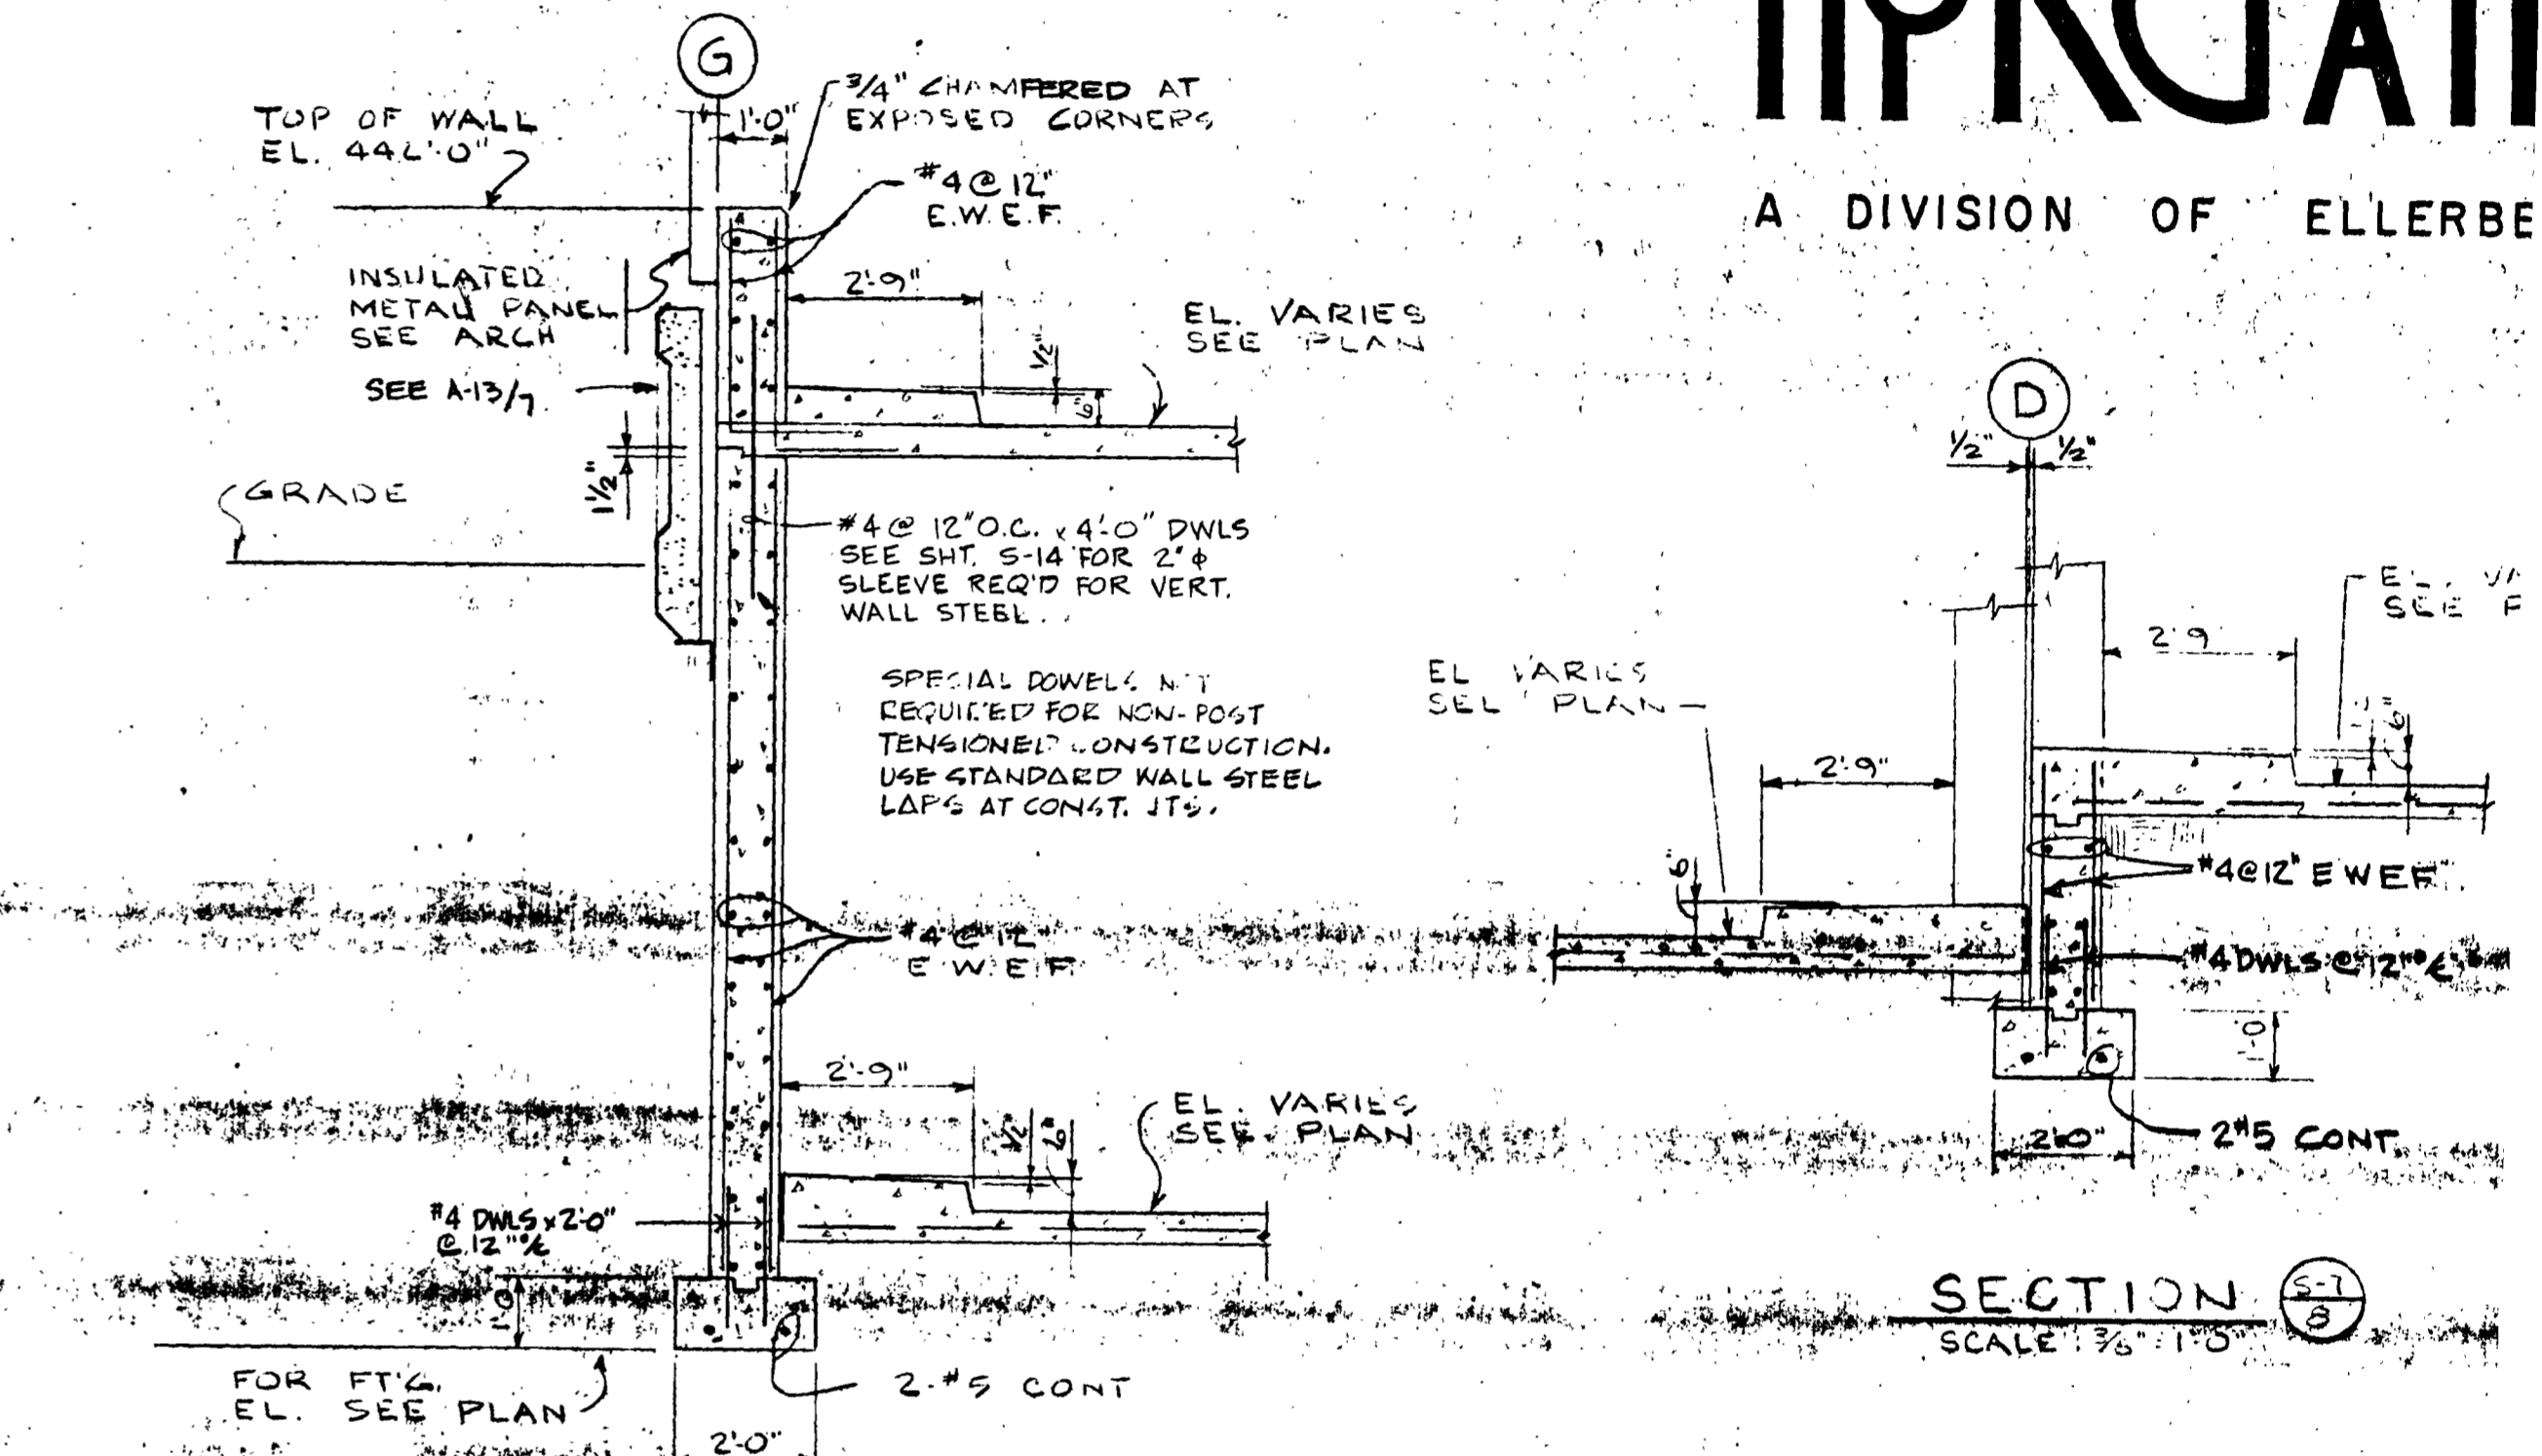 G
TOP OF WALL
3/4" CHAMFERED AT
EXPOSED CORNERS
1'-0"
#4 @ 12"
E.W.E.F.
INSULATED
METAL PANEL
SEE ARCH
2'-9"
SEE A-13/7
1/2"
6"
EL. VARIES
SEE PLAN
1 1/2"
GRADE
#4 @ 12" O.C. x 4'-0" DWLS
SEE SHT. S-14 FOR 2" φ
SLEEVE REQ'D FOR VERT.
WALL STEEL.
SPECIAL DOWELS NOT
REQUIRED FOR NON-POST
TENSIONED CONSTRUCTION.
USE STANDARD WALL STEEL
LAPS AT CONST. JTS.
#4 @ 12
E.W.E.F.
2'-9"
1/2"
6"
EL. VARIES
SEE PLAN
#4 DWLS x 2'-0"
@ 12" o/c
1'-0"
FOR FT'G.
EL. SEE PLAN
2-#5 CONT
2'-0"
A DIVISION OF ELLERBE
D
1/2" 1/2"
2'-9
6"
EL VARIES
SEE PLAN
2'-9"
6"
#4@12" EWEF
#4 DWLS @ 12" o/c
1'-0
2'-0"
2#5 CONT.
SECTION
S-7
8
SCALE: